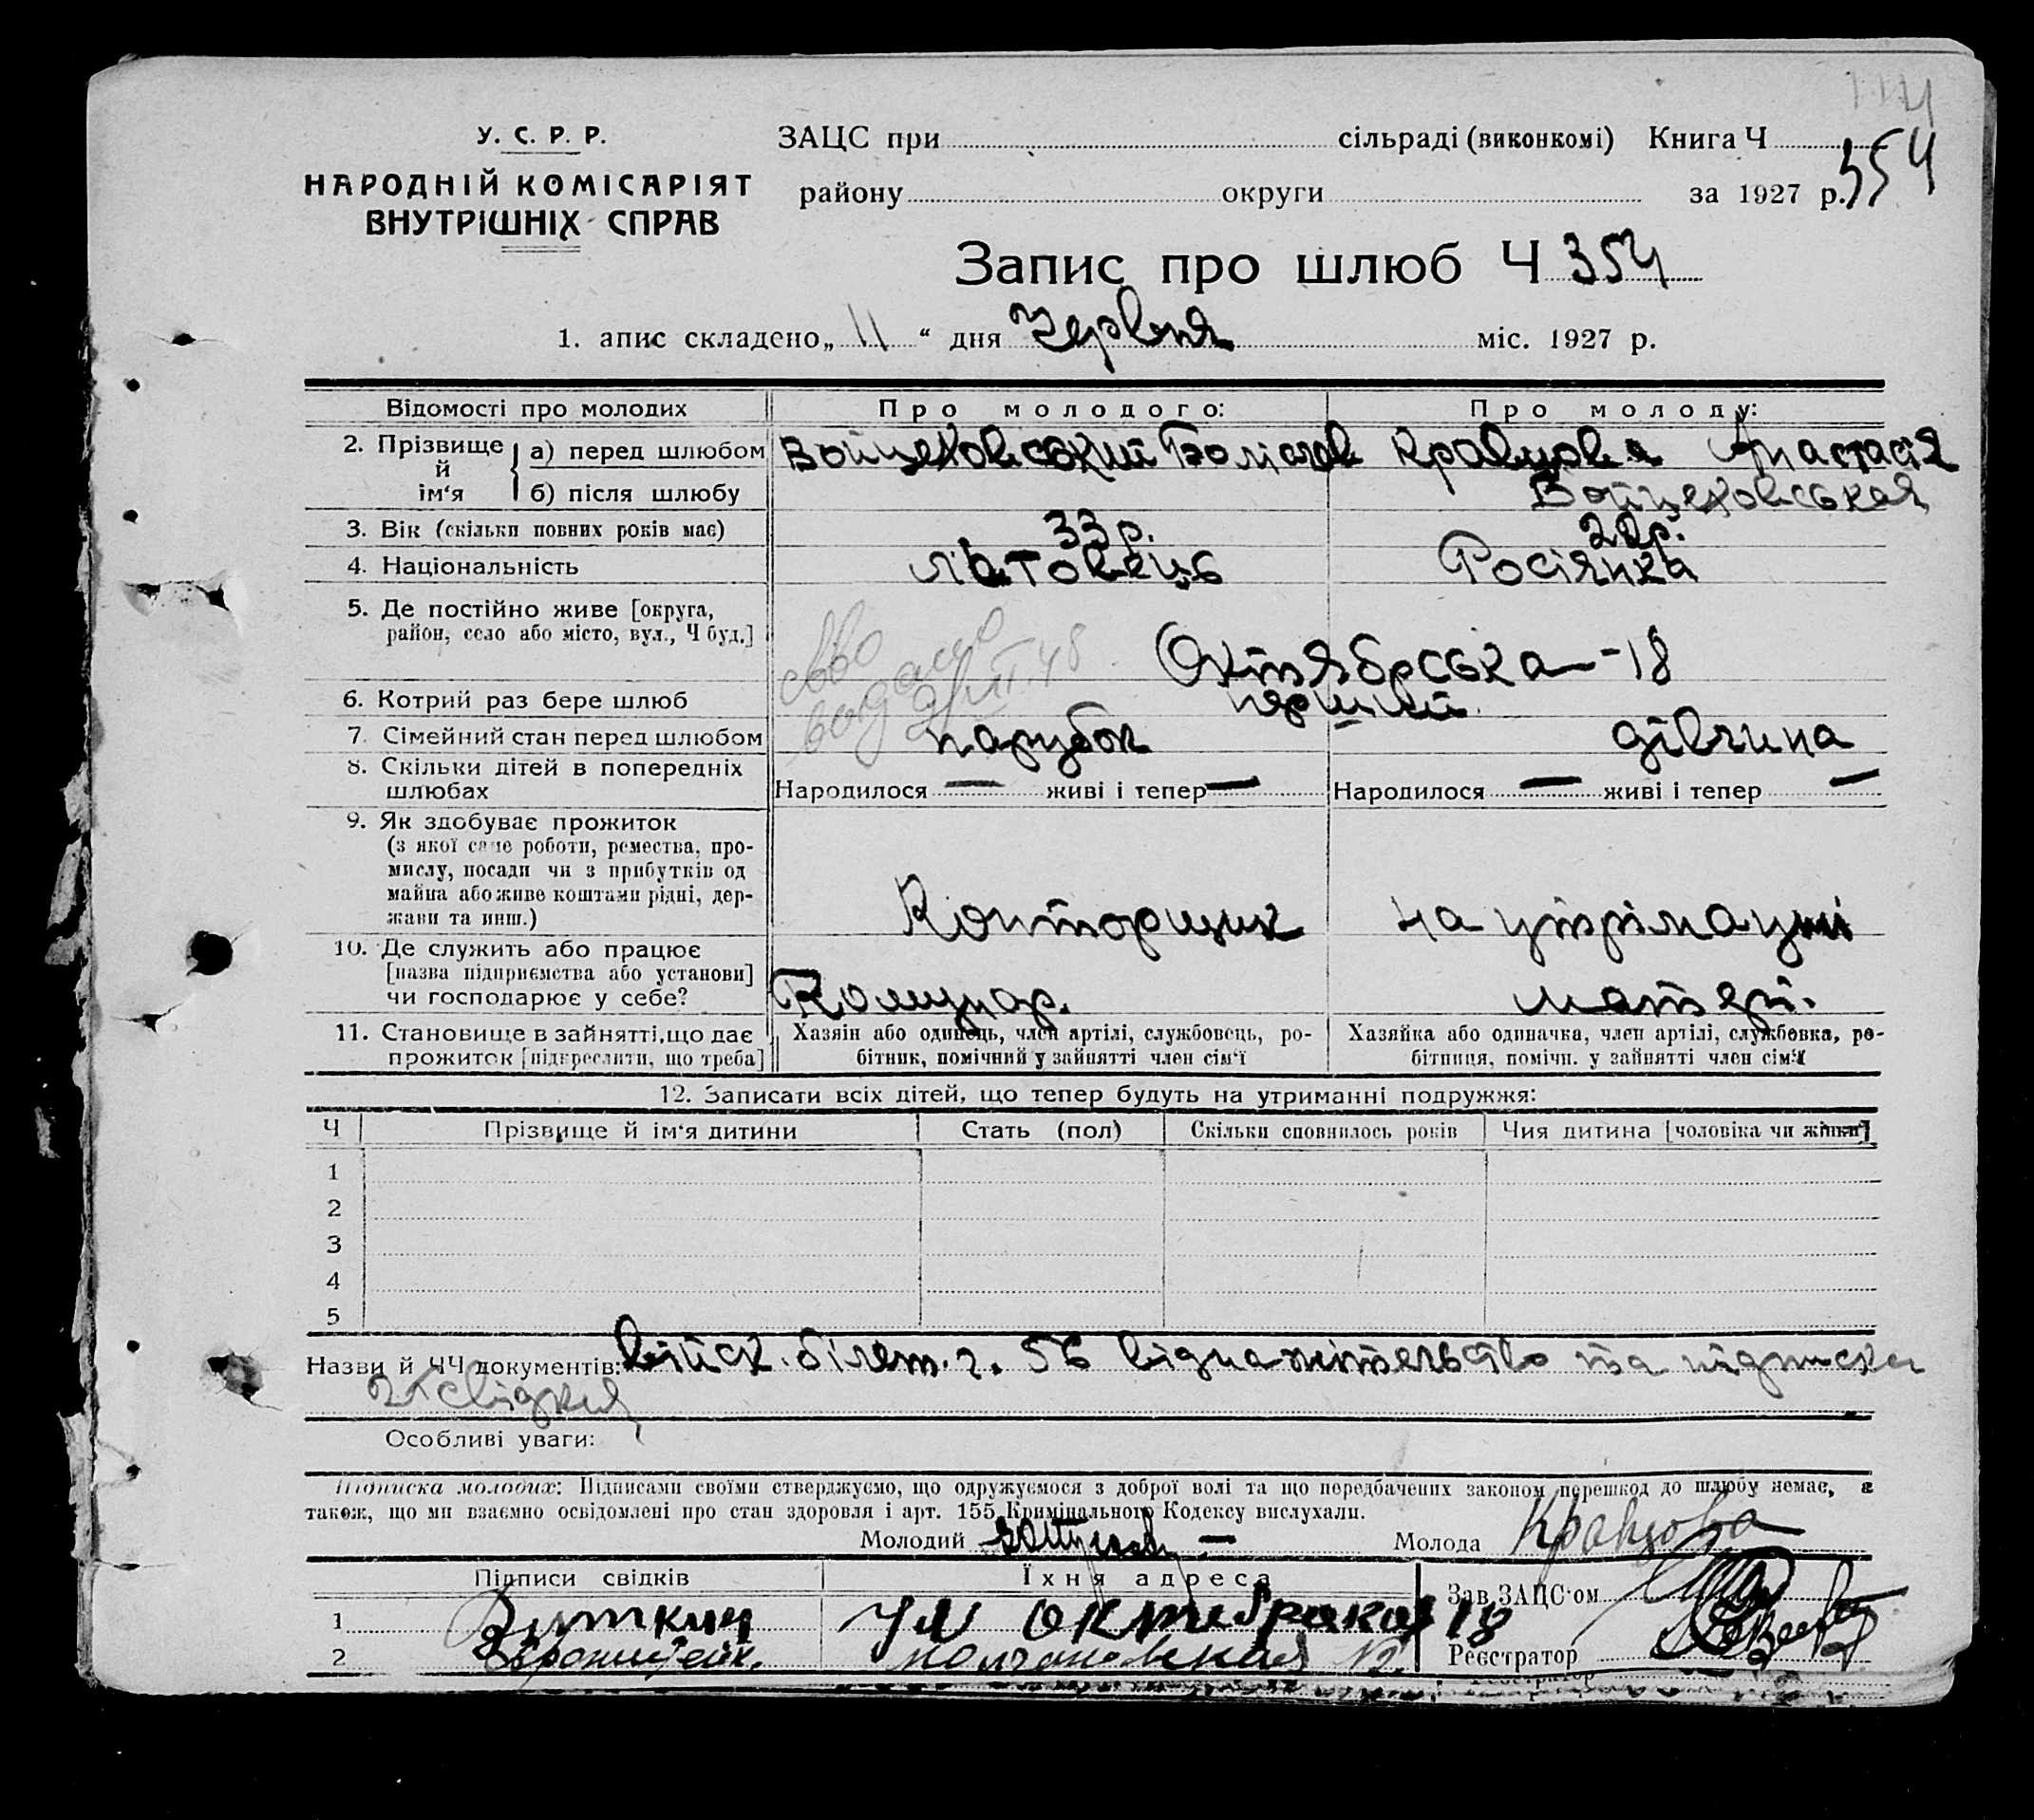 114
У. С. Р. Р.
НАРОДНІЙ КОМІСАРІЯТ
ВНУТРІШНІХ СПРАВ
ЗАЦС при сільраді (виконкомі) Книга Ч
району округи за 1927 р. 354
Запис про шлюб Ч 354
1. апис складено „ 11 “ дня Червня міс. 1927 р.
Відомості про молодих Про молодого: Про молоду:
2. Прізвище й ім‘я а) перед шлюбом Войцеховський Болісlав Кравцова Анастасія
б) після шлюбу Войцеховськая
3. Вік (скільки повних років має) 33 р. 22 р.
4. Національність Росіянка
5. Де постійно живе [округа,
район, село або місто, вул., Ч буд.] Октябрська - 18
6. Котрий раз бере шлюб перший
7. Сімейний стан перед шлюбом парубок дівчина
8. Скільки дітей в попередніх
шлюбах Народилося — живі і тепер — Народилося — живі і тепер —
9. Як здобуває прожиток
(з якої саме роботи, ремества, про-
мислу, посади чи з прибутків од
майна або живе коштами рідні, дер-
жави та инш.) Конторщик на утріманні
10. Де служить або працює
[назва підприємства або установи]
чи господарює у себе? Комунар. матері.
11. Становище в зайнятті, що дає
прожиток [підкреслити, що треба]
Хазяін або одинець, член артілі, службовець, ро-
бітник, помічний у зайнятті член сім‘ї
Хазяйка або одиначка, член артілі, службовка, ро-
бітниця, помічн. у зайнятті член сім‘ї
12. Записати всіх дітей, що тепер будуть на утриманні подружжя:
Ч Прізвище й ім‘я дитини Стать (пол) Скільки сповнилось років Чия дитина [чоловіка чи жінки]
1
2
3
4
5
Назви й ЧЧ документів: війск. білет. г. 56 та підписка
2х свідків
Особливі уваги:
Підписка молодих: Підписами своїми стверджуємо, що одружуємося з доброї волі та що передбачених законом перешкод до шлюбу немає, а
також, що ми взаємно освідомлені про стан здоровля і арт. 155 Кримінального Кодексу вислухали.
Молодий Молода Кравцова
Підписи свідків Їхня адреса Зав. ЗАЦС‘ом
1 ул октябрская 18
2 молчановская №2. Реєстратор